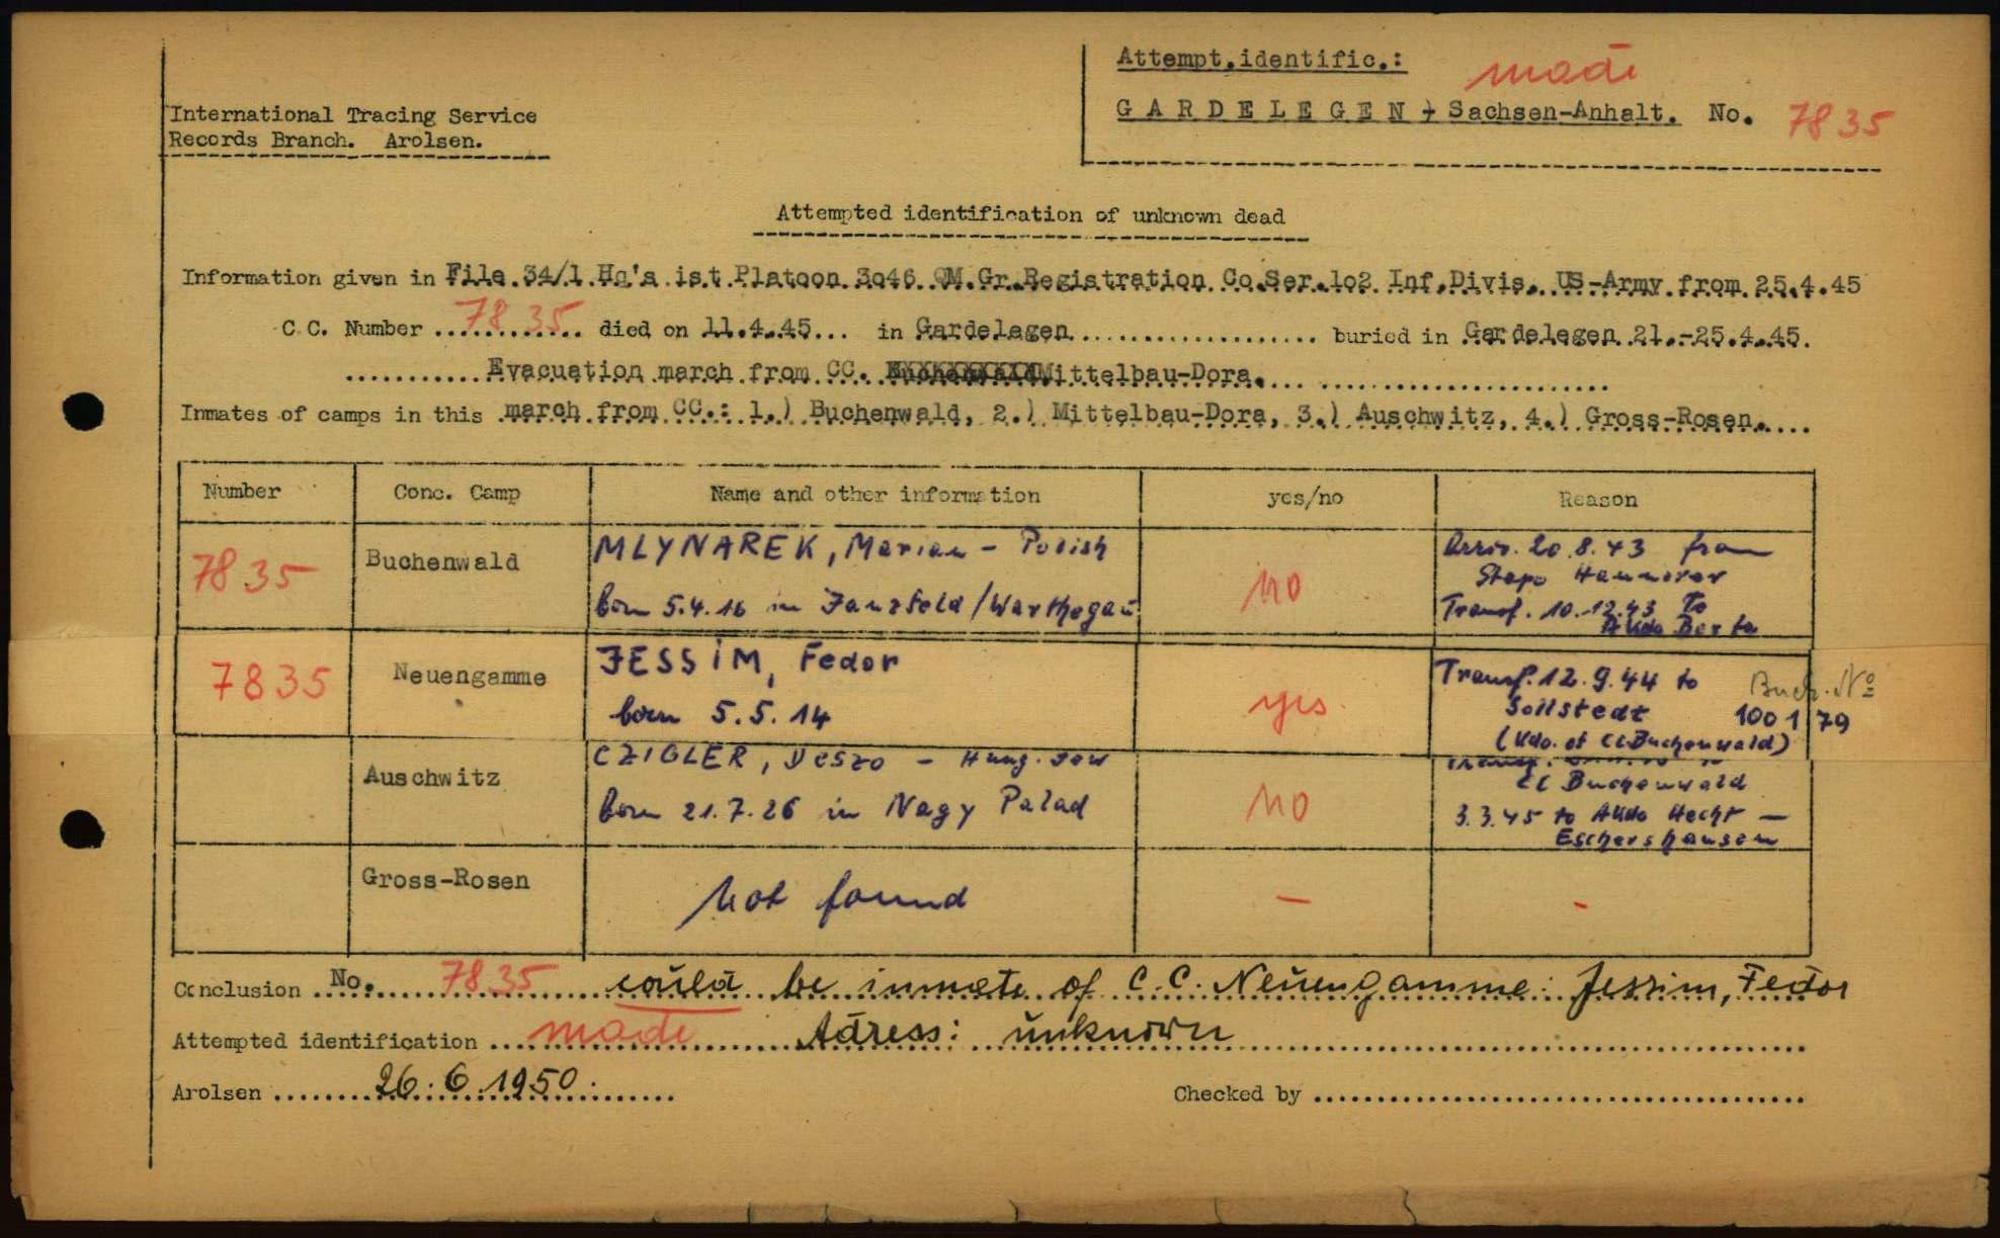 Attempt.identific.: made
International Tracing Service
Records Branch. Arolsen.
GARDELEGEN, Sachsen-Anhalt. No. 7835
Attempted identification of unknown dead
Information given in File 34/1 Hq's ist Platoon 3o46 QM.Gr.Registration Co.Ser.1o2 Inf.Divis. US-Army from 25.4.45
C.C. Number 7835 died on 11.4.45... in Gardelegen buried in Gardelegen 21.-25.4.45.
Evacuation march from CC. Mittelbau-Dora.
Inmates of camps in this march from CC.: 1.) Buchenwald, 2.) Mittelbau-Dora, 3.) Auschwitz, 4.) Gross-Rosen.
Number Conc. Camp Name and other information yes/no Reason
7835 Buchenwald MLYNAREK, Marian - Polish
born 5.4.16 in Janzfeld/Warthegau
no
Arriv. 20.8.43 from
Stapo Hannover
Transf. 10.12.43 to
AKdo Berta
7835 Neuengamme JESSIM, Fedor
born 5.5.14
yes.
Transf. 12.9.44 to
Sollstedt
(Kdo. of CC Buchenwald)
Buch. No
100179
Auschwitz CZIGLER, Deszo - Hung. Jew
born 21.7.26 in Nagy Palad
no
CC Buchenwald
3.3.45 to AKdo Hecht -
Eschershausen
Gross-Rosen not found - -
Conclusion No. 7835 could be inmate of C.C. Neuengamme: Jessim, Fedor
Attempted identification made Adress: unknown
Arolsen 26.6.1950. Checked by